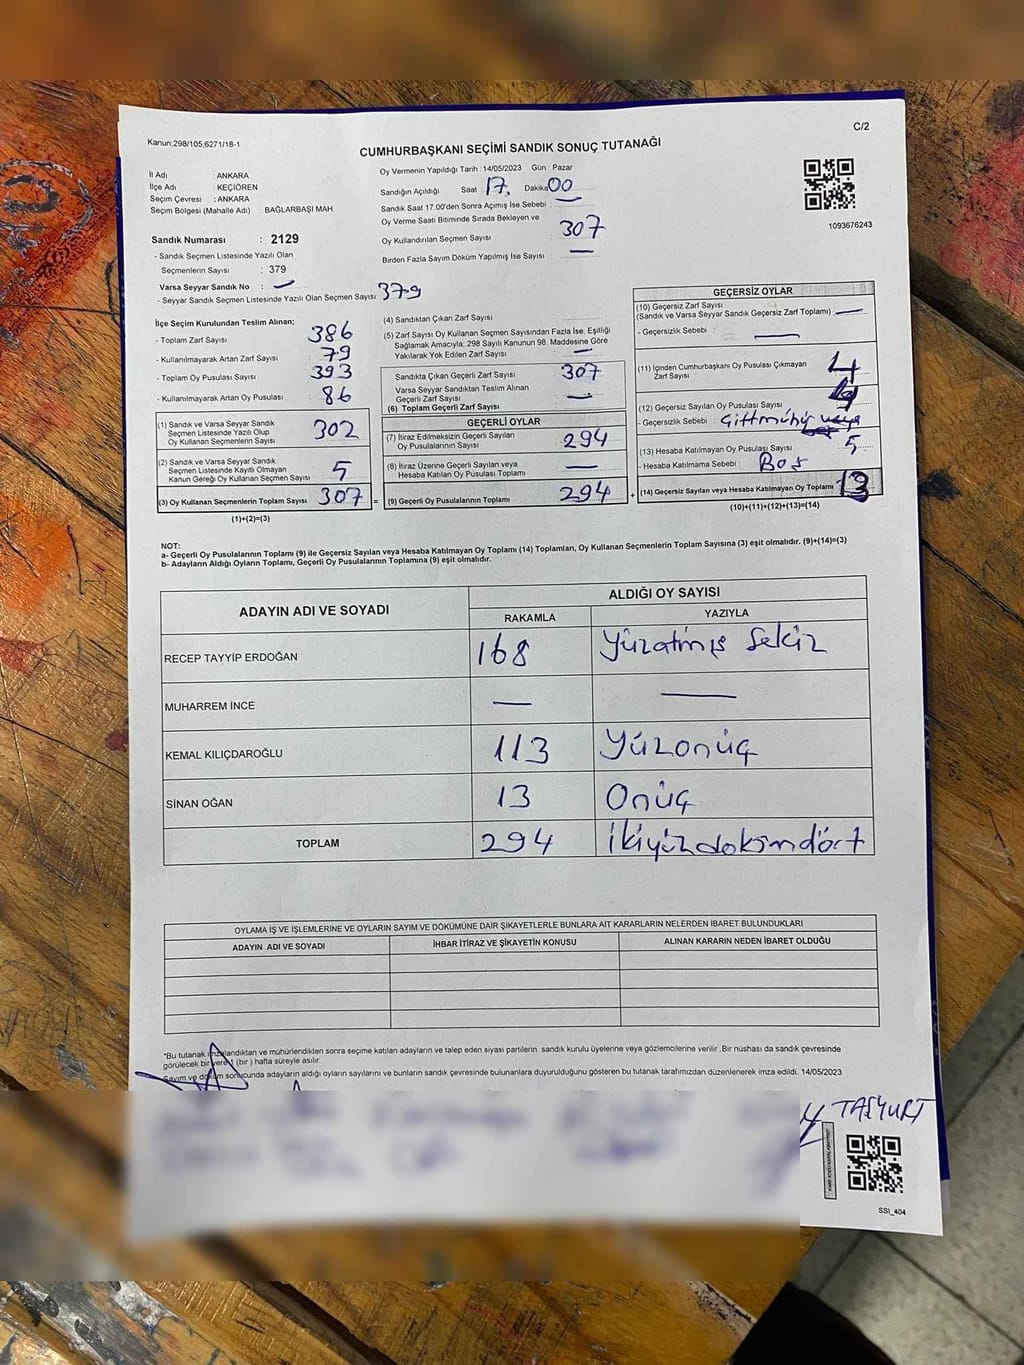 Kanun;298/105,6271/18-1
C/2
CUMHURBAŞKANI SEÇİMİ SANDIK SONUÇ TUTANAĞI
İl Adı : ANKARA
İlçe Adı : KEÇİÖREN
Seçim Çevresi : ANKARA
Seçim Bölgesi (Mahalle Adı) BAĞLARBAŞI MAH.
Sandık Numarası : 2129
- Sandık Seçmen Listesinde Yazılı Olan
Seçmenlerin Sayısı : 379
Varsa Seyyar Sandık No : —
- Seyyar Sandık Seçmen Listesinde Yazılı Olan Seçmen Sayısı 379
Oy Vermenin Yapıldığı Tarih : 14/05/2023 Gün : Pazar
Sandığın Açıldığı Saat 17, Dakika 00
Sandık Saat 17:00'den Sonra Açımış İse Sebebi : —
Oy Verme Saati Bitiminde Sırada Bekleyen ve
Oy Kullandırılan Seçmen Sayısı 307
Birden Fazla Sayım Döküm Yapılmış İse Sayısı —
1093676243
İlçe Seçim Kurulundan Teslim Alınan;
- Toplam Zarf Sayısı 386
- Kullanılmayarak Artan Zarf Sayısı 79
- Toplam Oy Pusulası Sayısı 393
- Kullanılmayarak Artan Oy Pusulası 86
(1) Sandık ve Varsa Seyyar Sandık
Seçmen Listesinde Yazılı Olup
Oy Kullanan Seçmenlerin Sayısı 302
(2) Sandık ve Varsa Seyyar Sandık
Seçmen Listesinde Kayıtlı Olmayan
Kanun Gereği Oy Kullanan Seçmen Sayısı 5
(3) Oy Kullanan Seçmenlerin Toplam Sayısı 307 =
(1)+(2)=(3)
(4) Sandıktan Çıkan Zarf Sayısı
(5) Zarf Sayısı Oy Kullanan Seçmen Sayısından Fazla İse, Eşitliği
Sağlamak Amacıyla, 298 Sayılı Kanunun 98. Maddesine Göre
Yakılarak Yok Edilen Zarf Sayısı —
Sandıkta Çıkan Geçerli Zarf Sayısı 307
Varsa Seyyar Sandıktan Teslim Alınan
Geçerli Zarf Sayısı —
(6) Toplam Geçerli Zarf Sayısı
GEÇERLİ OYLAR
(7) İtiraz Edilmeksizin Geçerli Sayılan
Oy Pusulalarının Sayısı 294
(8) İtiraz Üzerine Geçerli Sayılan veya
Hesaba Katılan Oy Pusulası Toplamı —
(9) Geçerli Oy Pusulalarının Toplamı 294 +
GEÇERSİZ OYLAR
(10) Geçersiz Zarf Sayısı
(Sandık ve Varsa Seyyar Sandık Geçersiz Zarf Toplamı) —
- Geçersizlik Sebebi : —
(11) İçinden Cumhurbaşkanı Oy Pusulası Çıkmayan
Zarf Sayısı 4
(12) Geçersiz Sayılan Oy Pusulası Sayısı 4
- Geçersizlik Sebebi :
(13) Hesaba Katılmayan Oy Pusulası Sayısı 5
- Hesaba Katılmama Sebebi : Boş
(14) Geçersiz Sayılan veya Hesaba Katılmayan Oy Toplamı 13
(10)+(11)+(12)+(13)=(14)
NOT:
a- Geçerli Oy Pusulalarının Toplamı (9) ile Geçersiz Sayılan veya Hesaba Katılmayan Oy Toplamı (14) Toplamları, Oy Kullanan Seçmenlerin Toplam Sayısına (3) eşit olmalıdır. (9)+(14)=(3)
b- Adayların Aldığı Oyların Toplamı, Geçerli Oy Pusulalarının Toplamına (9) eşit olmalıdır.
ADAYIN ADI VE SOYADI ALDIĞI OY SAYISI
RAKAMLA YAZIYLA
RECEP TAYYİP ERDOĞAN 168 Yüzatmış Sekiz
MUHARREM İNCE — —
KEMAL KILIÇDAROĞLU 113 Yüzonüç
SİNAN OĞAN 13 Onüç
TOPLAM 294 İkiyüzdoksandört
OYLAMA İŞ VE İŞLEMLERİNE VE OYLARIN SAYIM VE DÖKÜMÜNE DAİR ŞİKAYETLERLE BUNLARA AİT KARARLARIN NELERDEN İBARET BULUNDUKLARI
ADAYIN ADI VE SOYADI İHBAR İTİRAZ VE ŞİKAYETİN KONUSU ALINAN KARARIN NEDEN İBARET OLDUĞU
*Bu tutanak imzalandıktan ve mühürlendikten sonra seçime katılan adayların ve talep eden siyasi partilerin sandık kurulu üyelerine veya gözlemcilerine verilir .Bir nüshası da sandık çevresinde
görülecek bir yere 1 (bir ) hafta süreyle asılır.
Sayım ve döküm sonucunda adayların aldığı oyların sayılarını ve bunların sandık çevresinde bulunanlara duyurulduğunu gösteren bu tutanak tarafımızdan düzenlenerek imza edildi. 14/05/2023
TAŞYURT
SSI_404